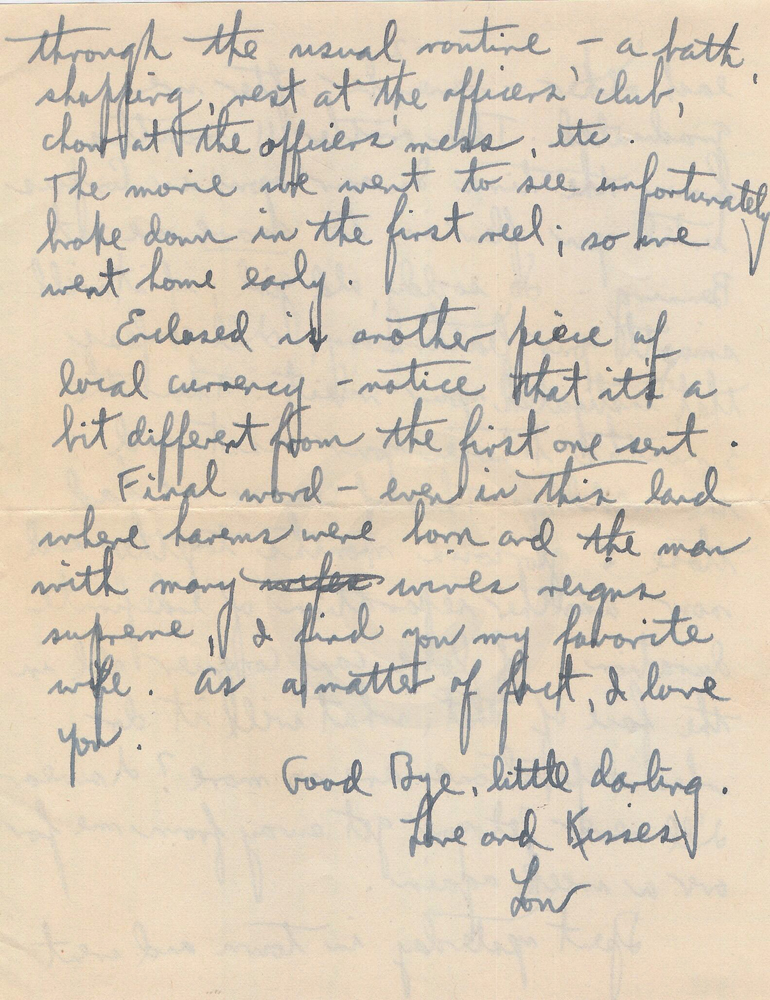 through the usual routine – a bath,
shopping, rest at the officers' club,
chow at the officers' mess, etc.
The movie we went to see unfortunately
broke down in the first reel; so we
went home early.
Enclosed is another piece of
local currency – notice that it's a
bit different from the first one sent.
Final word – even in this land
where harems were born and the man
with many wives reigns
supreme, I find you my favorite
wife. As a matter of fact, I love
you.
Good Bye, little darling.
Love and Kisses
Lou